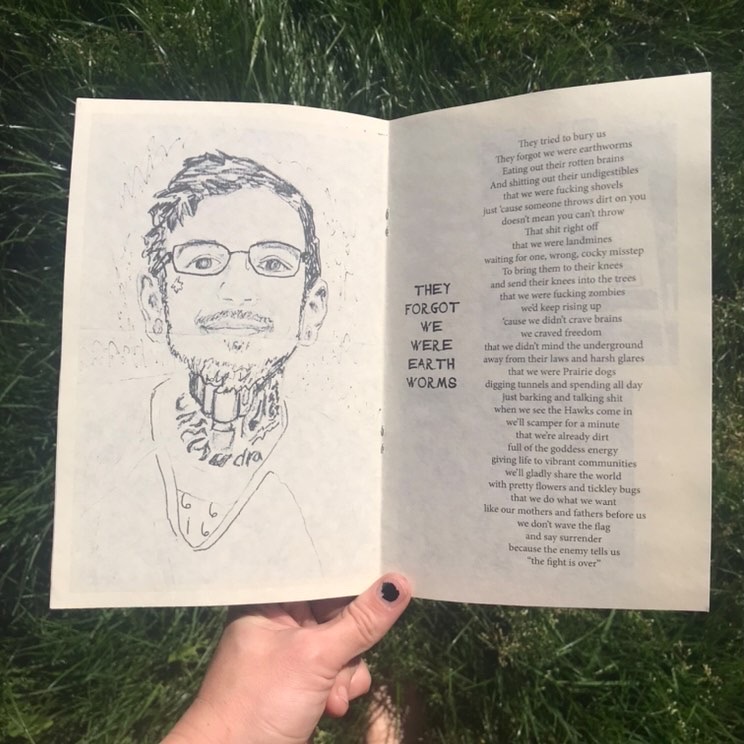 dra
THEY
FORGOT
WE
WERE
EARTH
WORMS
They tried to bury us
They forgot we were earthworms
Eating out their rotten brains
And shitting out their undigestibles
that we were fucking shovels
just 'cause someone throws dirt on you
doesn't mean you can't throw
That shit right off
that we were landmines
waiting for one, wrong, cocky misstep
To bring them to their knees
and send their knees into the trees
that we were fucking zombies
we'd keep rising up
'cause we didn't crave brains
we craved freedom
that we didn't mind the underground
away from their laws and harsh glares
that we were Prairie dogs
digging tunnels and spending all day
just barking and talking shit
when we see the Hawks come in
we'll scamper for a minute
that we're already dirt
full of the goddess energy
giving life to vibrant communities
we'll gladly share the world
with pretty flowers and tickley bugs
that we do what we want
like our mothers and fathers before us
we don't wave the flag
and say surrender
because the enemy tells us
"the fight is over"